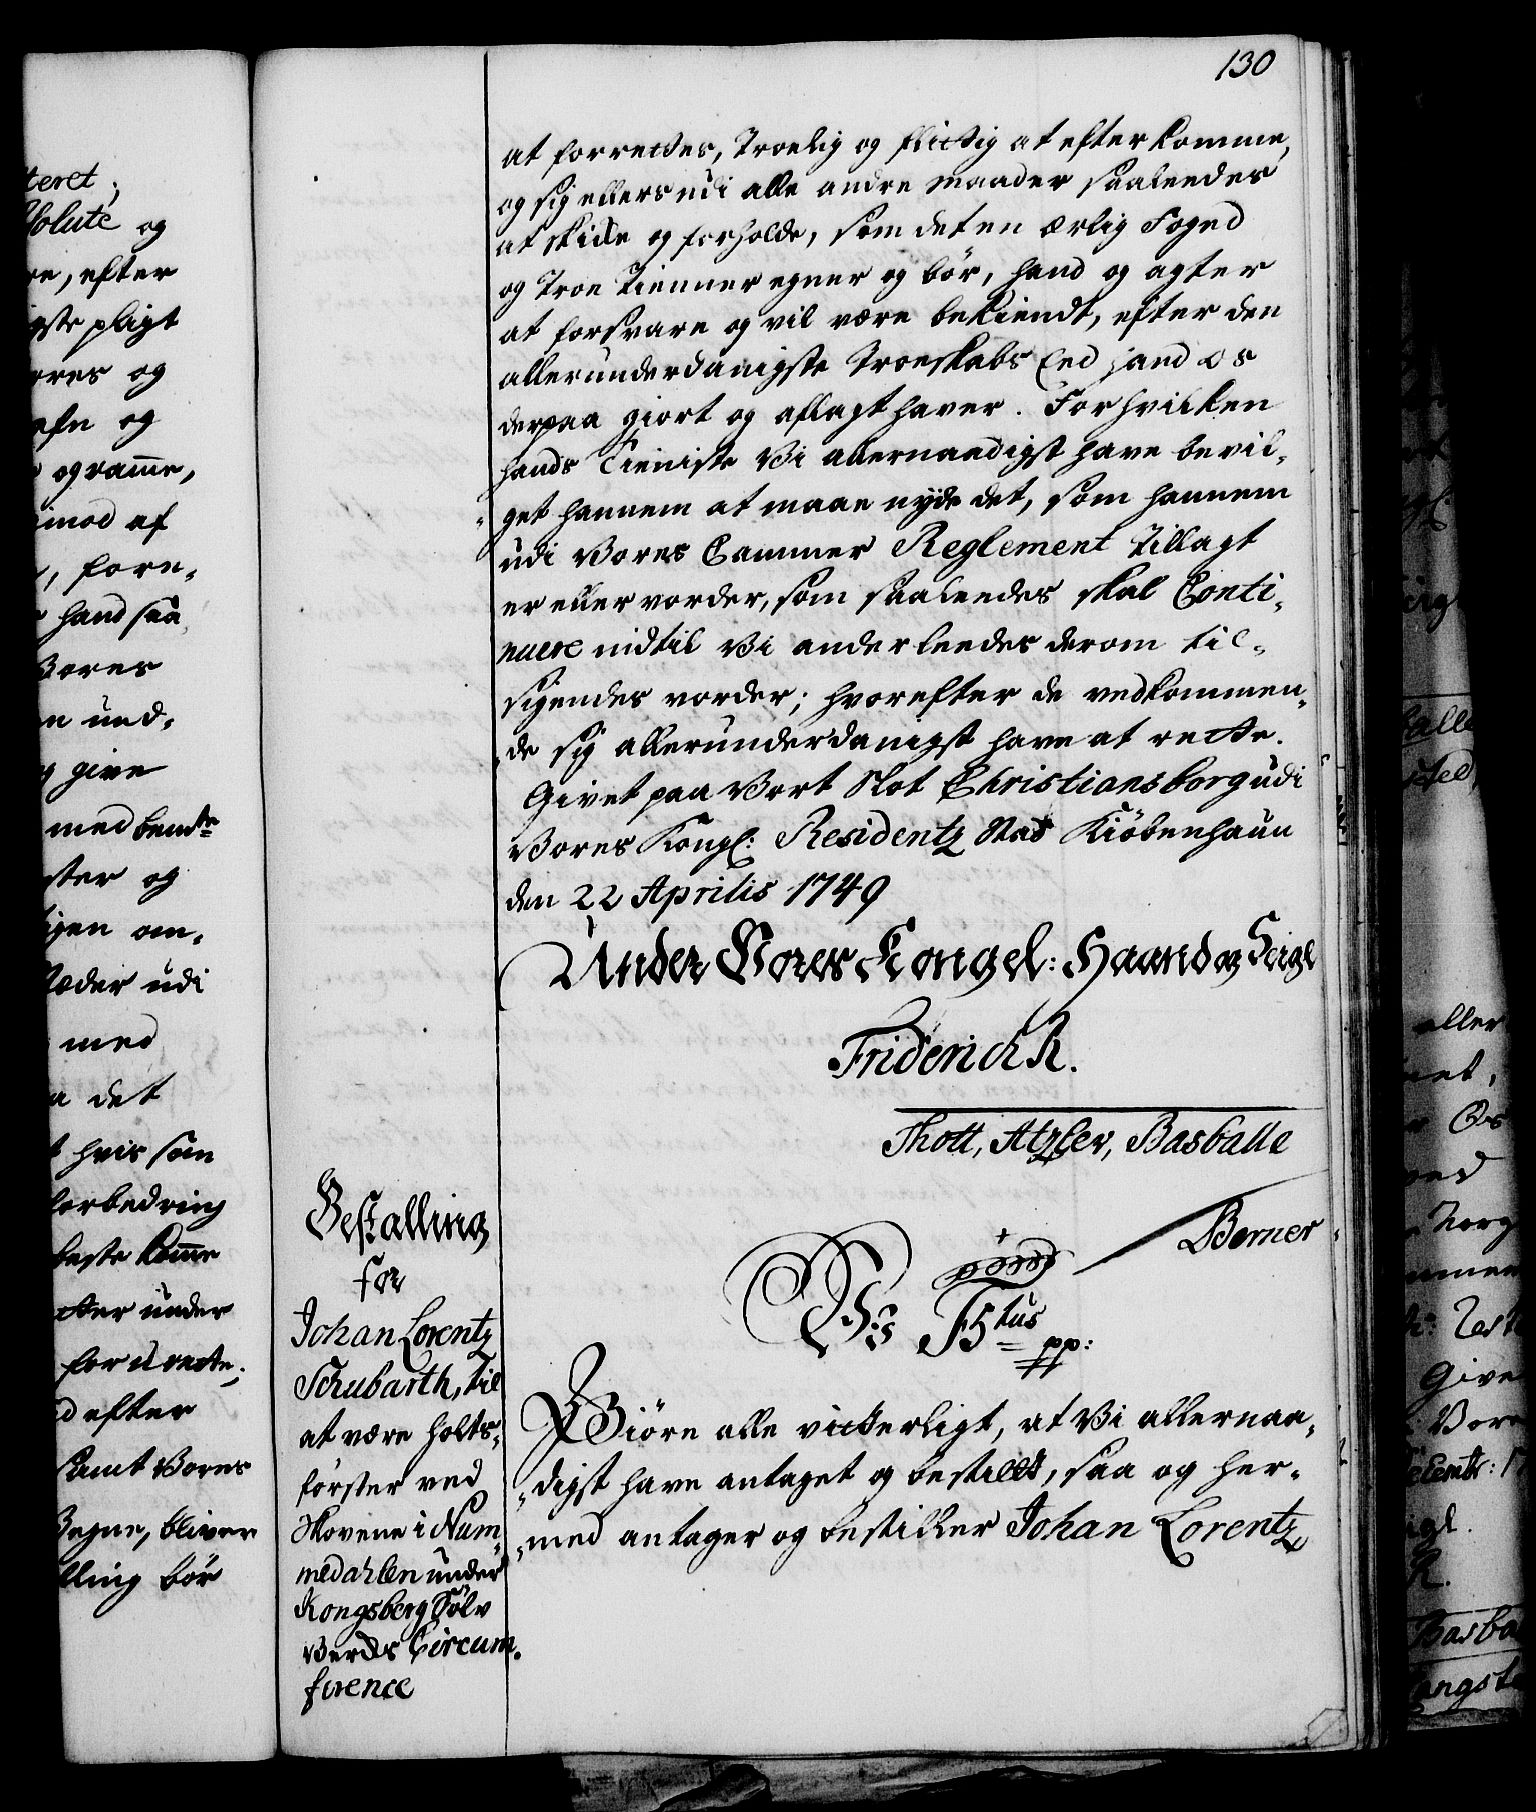 130
at forrettes, Troelig og flittig at efterkomme,
og sig ellers udi alle andre maader saaleedes
at skikke og forholde, som det en ærlig Foged
og Troe Tienner egner og bör, hand og agter
at forsvare og vil være bekiendt, efter den
allerunderdanigste Troeskabs Eed hand os
derpaa giort og aflagt haver. For hvilken
hands Tieniste Vi allernaadigst have bevil-
get hannem at maae nyde det, som hannem
udi Vores Cammer Reglement tillagt
er eller vorder, som saaleedes skal Conti-
nuere indtil Vi anderleedes derom til-
sigendes vorder; hvorefter de vedkommen-
de sig allerunderdanigst have at rette.
Givet paa Vort Slot Christiansborg udi
Vores Kongl: Residentz Stad Kiöbenhaun
den 22 Aprilis 1749
Under Vores Kongel: Haand og Seigl
Friderich R.
Thott, Atzlev, Basballe
Berner
Bestalling
for
Johan Lorentz
Schubarth, til
at være Holts-
förster ved
Skovene i Num-
medahlen under
Kongsberg Sölv
Verks Circum-
ference
Ws F5tus pp:
Giöre alle vitterligt, at Vi allernaa-
digst have antaget og bestillt, saa og her-
med antager og bestiller Johan Lorentz
teret;
solute og
re, efter
igste pligt
ores og
afn og
og ramme,
imod af
, fore-
hand saa
Vores
n und-
g give
med bemte
ster og
igen om-
stæder udi
med
a det
t hvis som
forbedring
beste komme
etter under
for urette;
d efter
samt Vores
Vegne, bliver
lling bör